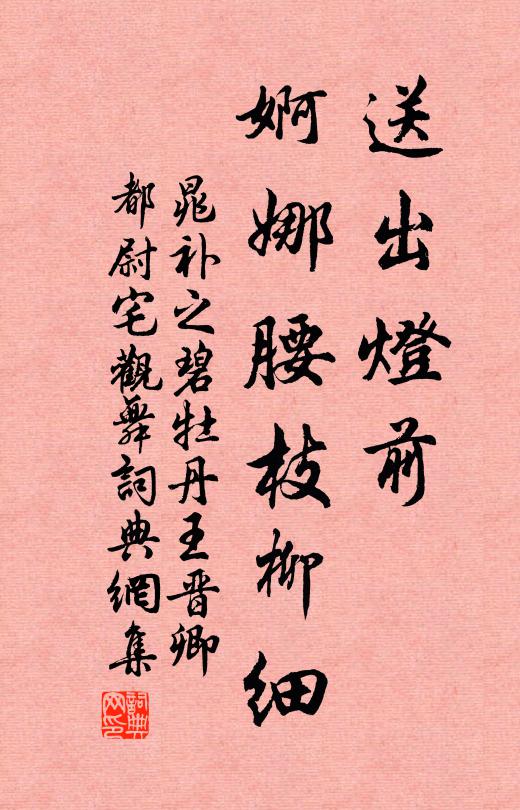 送出燈前
婀娜腰枝柳細
晁补之碧牡丹王晋卿
都尉宅觀舞詞典網集
詞典网印